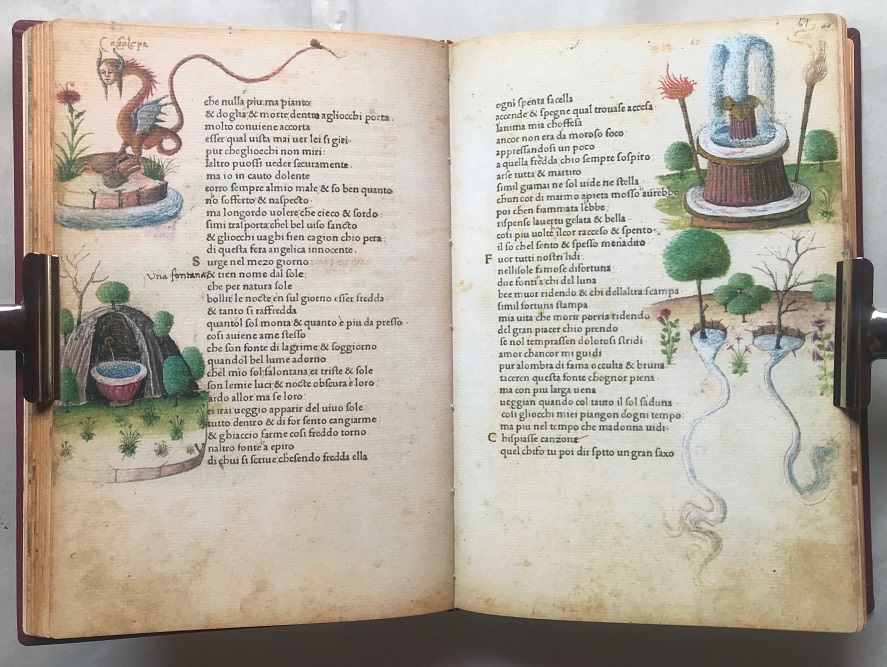 che nulla piu: ma pianto
& doglia & morte dentro agliocchi porta.
molto conuiene accorta
esser qual uista mai uer lei si giri.
pur chegliocchi non miri:
laltro puossi ueder securamente.
ma io in cauto dolente
corro sempre al mio male, & so ben quanto
no sofferto & naspecto.
ma longordo uolere che cieco & sordo
simi tralporta: chel bel uiso sancto
& gliocchi uaghi fien cagion chio pera:
di questa fera angelica innocente.
Surge nel mezo giorno
una fontana & tien nome dal sole:
che per natura sole
bollir le nocte en sul giorno esser fredda
& tanto si raffredda
quantol sol monta & quanto è piu da presso
cosi auiene ame stesso
che son fonte di lagrime & soggiorno
quandol bel lume adorno
chel mio sol: salontana, et triste & sole
son le mie luci, & nocte obscura è loro:
ardo allor ma se loro
et i rai ueggio apparir del uiuo sole
tutto dentro & di for sento cangiarme
& ghiaccio farme cosi freddo torno.
naltro fonte a epiro
di chui si scriue: chesendo fredda ella
61
ogni spenta facella
accende & spegne qual trouasse accesa
lanima mia choffesa
ancor non era da moroso foco:
appressandosi un poco
a quella fredda chio sempre sospiro
arse tutta & martiro
simil giamai ne sol uide ne stella
chun cor di marmo a pieta mosso aurebbe
poi chen fiammata lebbe:
rispense la uertu gelata & bella
cosi piu uolte il cor racceso & spento.
il so chel sento & spesso menadiro
Fuor tutti nostri lidi
nellisole famose difortuna
due fonti a chi del luna
bee muor ridendo & chi dellaltra scampa
simil fortuna stampa
mia uita che morir poria ridendo
del gran piacer chio prendo
se nol temprassen dolorosi stridi
amor chancor mi guidi
pur alombra di fama occulta & bruna
taceren questa fonte chognor piena
ma con piu larga uena
ueggian quando col tauro il sol saduna
cosi gliocchi miei piangon dogni tempo
ma piu nel tempo che madonna uidi
Chi spiasse canzone
quel chi fo tu poi dir sotto un gran saxo